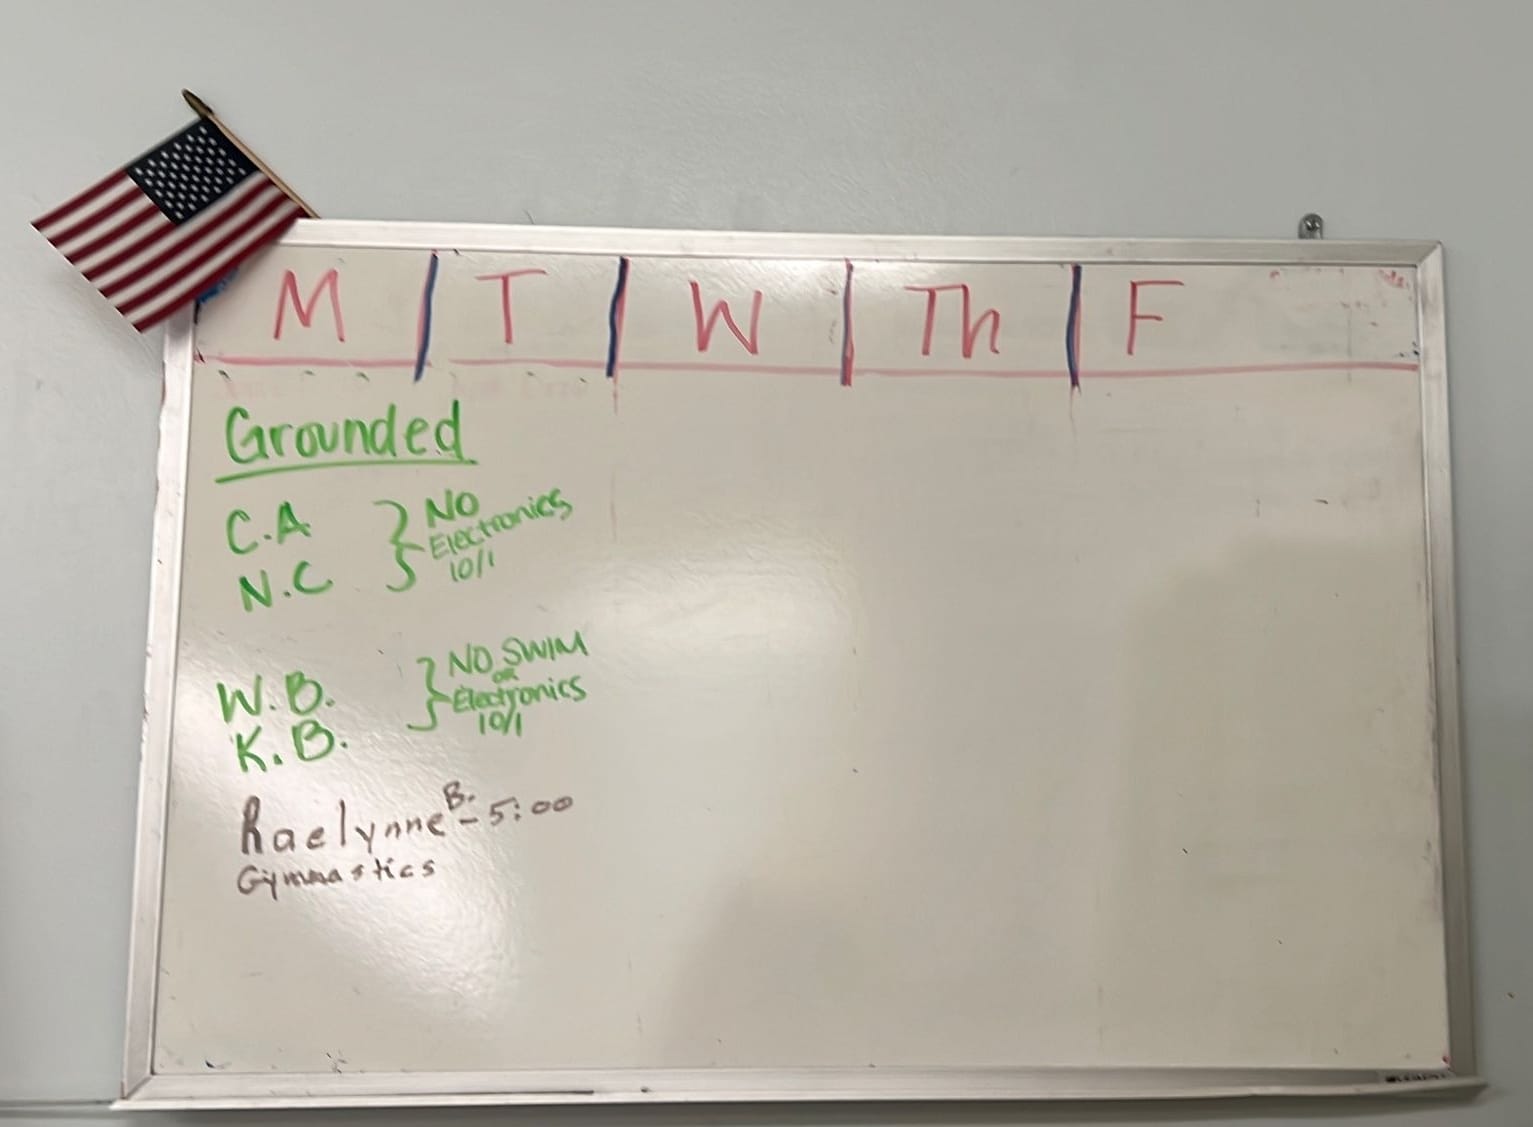 M T W Th F
Grounded
C.A
N.C
NO
Electronics
10/1
W.B.
K.B.
NO SWIM
OR
Electronics
10/1
Raelynne B. - 5:00
Gymnastics